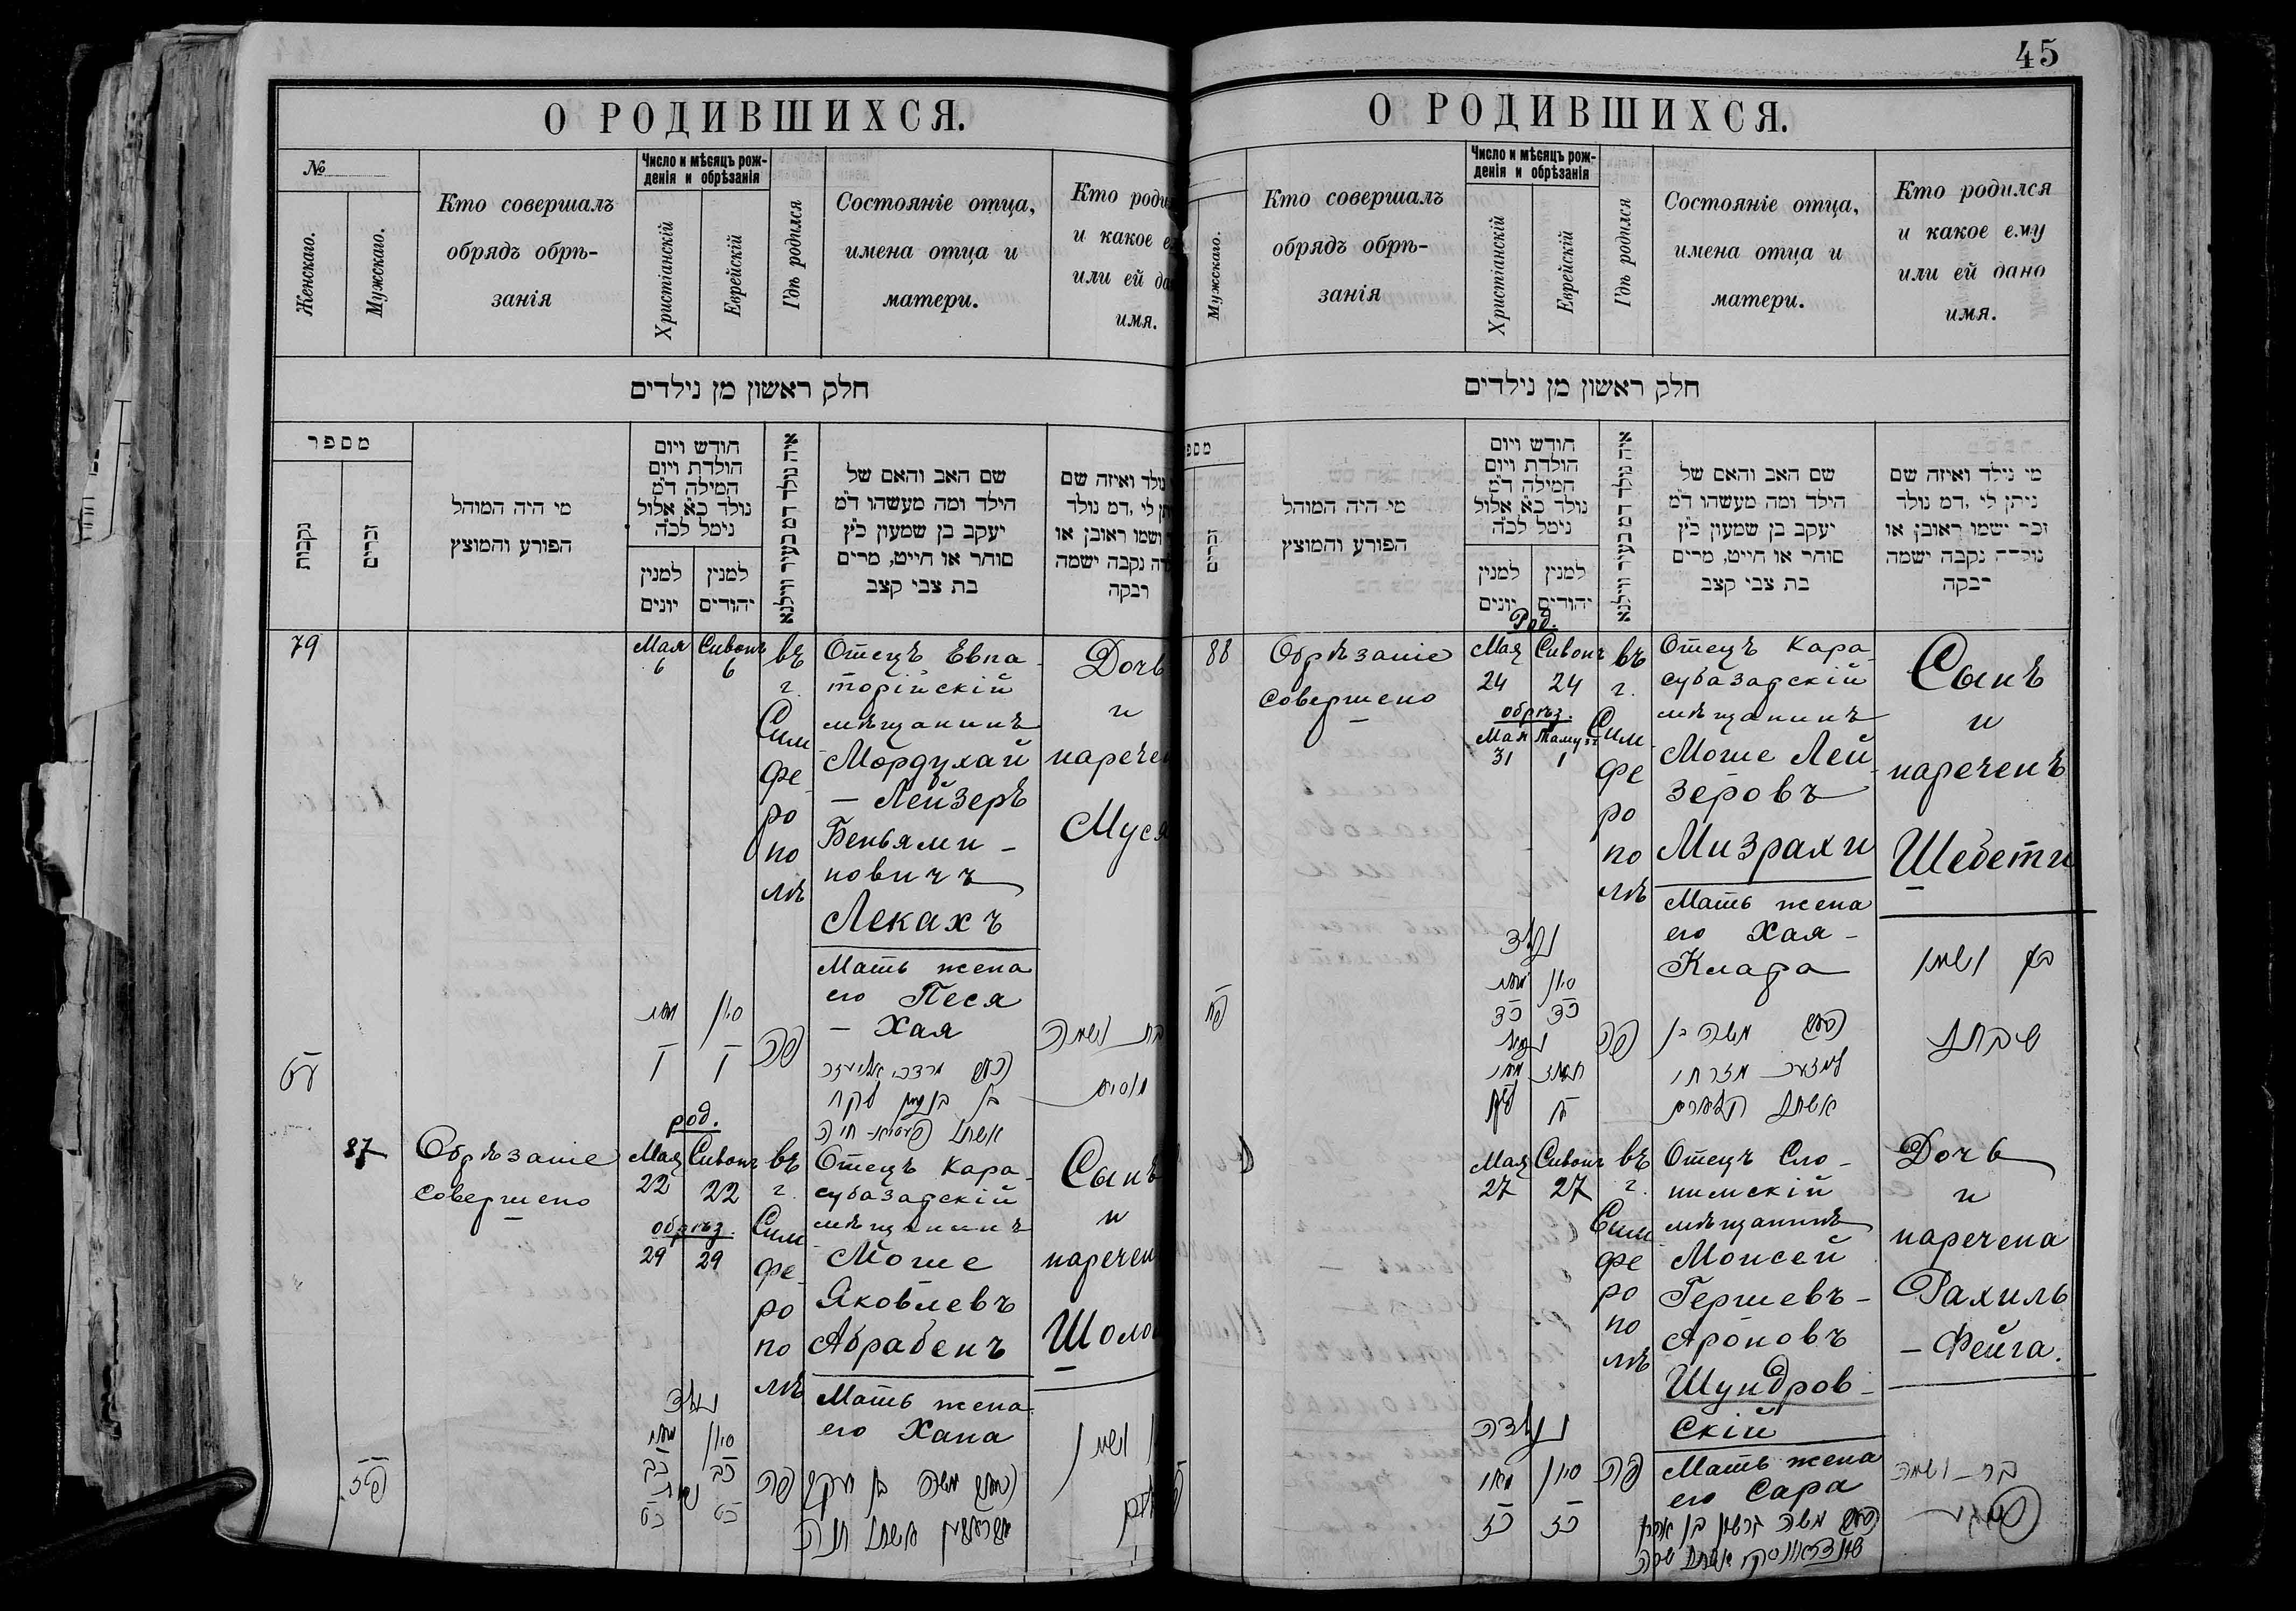 45
О РОДИВШИХСЯ.
№
Женскаго.
Мужскаго.
Кто совершалъ
обрядъ обрѣ-
занія
Число и мѣсяцъ рож-
денія и обрѣзанія
Христіанскій
Еврейскій
Гдѣ родился
Состояніе отца,
имена отца и
матери.
Кто роди
и какое е
или ей да
имя.
חלק ראשון מן נילדים
מספר
נקבות
זכרים
מי היה המוהל
הפורע והמוצץ
חודש ויום
הולדת ויום
המילה ד"מ
נולד כ"א אלול
נימל לכ"ה
למנין
יונים
למנין
יהודים
איה נולד דמ בעיר ווילנא
שם האב והאם של
הילד ומה מעשהו ד"מ
יעקב בן שמעון כ"ץ
סוחר או חייט, מרים
בת צבי קצב
נולד ואיזה שם
לי ,דמ נולד
ושמו ראובן או
נקבה ישמה
רבקה
79
Мая
6
Сивонъ
6
въ
г.
Сим
фе
ро
по
лѣ
Отецъ Евпа
торійскій
мѣщанинъ
Мордухай
– Лейзеръ
Беньями –
новичъ
Лекахъ
Мать жена
его Песя
– Хая
Дочь
и
наречен
Муся
עט
סיון
ו
ו
פה
בת ושמה
מרדכי אליעזר
בן
לקח
אשתו
חיה
87
Обрѣзаніе
совершено
род.
Мая
22
Сивонъ
22
обрѣз.
29
29
въ
г.
Сим
фе
ро
по
лѣ
Отецъ Кара
субазарскій
мѣщанинъ
Моше
Яковлевъ
Абрабенъ
Мать жена
его Хана
Сынъ
и
наречен
Шоло
פז
נולד
סיון
כב
כב
כט
כט
פה
משה בן
אשתו חנה
ושמו
О РОДИВШИХСЯ.
Мужскаго.
Кто совершалъ
обрядъ обрѣ-
занія
Число и мѣсяцъ рож-
денія и обрѣзанія
Христіанскій
Еврейскій
Гдѣ родился
Состояніе отца,
имена отца и
матери.
Кто родился
и какое ему
или ей дано
имя.
חלק ראשון מן נילדים
זכרים
מי היה המוהל
הפורע והמוצץ
חודש ויום
הולדת ויום
המילה ד"מ
נולד כ"א אלול
נימל לכ"ה
למנין
יונים
למנין
יהודים
איה נולד דמ בעיר ווילנא
שם האב והאם של
הילד ומה מעשהו ד"מ
יעקב בן שמעון כ"ץ
סוחר או חייט, מרים
בת צבי קצב
מי נילד ואיזה שם
ניתן לי ,דמ נולד
זכר ישמו ראובן או
נולדה נקבה ישמה
רבקה
88
Обрѣзаніе
совершено
Род.
Мая
24
Сивонъ
24
обрѣз.
Мая
31
Тамузъ
1
въ
г.
Сим
фе
ро
по
лѣ
Отецъ Кара
субазарскій
мѣщанинъ
Моше Лей
зеровъ
Мизрахи
Мать жена
его Хая –
Клара
Сынъ
и
нареченъ
Шебети
פח
נולד
סיון
כד
כד
פה
משה בן
מזרחי
אשתו
בן ושמו
שבתי
Мая
27
Сивонъ
27
въ
г.
Сим
фе
ро
по
лѣ
Отецъ Сло –
нимскій
мѣщанинъ
Моисей
Гершевъ –
Ароновъ
Шундров –
скій
Мать жена
его Сара
Дочь
и
наречена
Рахиль
– Фейга.
נולדה
סיון
כז
כז
פה
משה גרשון בן אהרן
אשתו שרה
בת ושמה